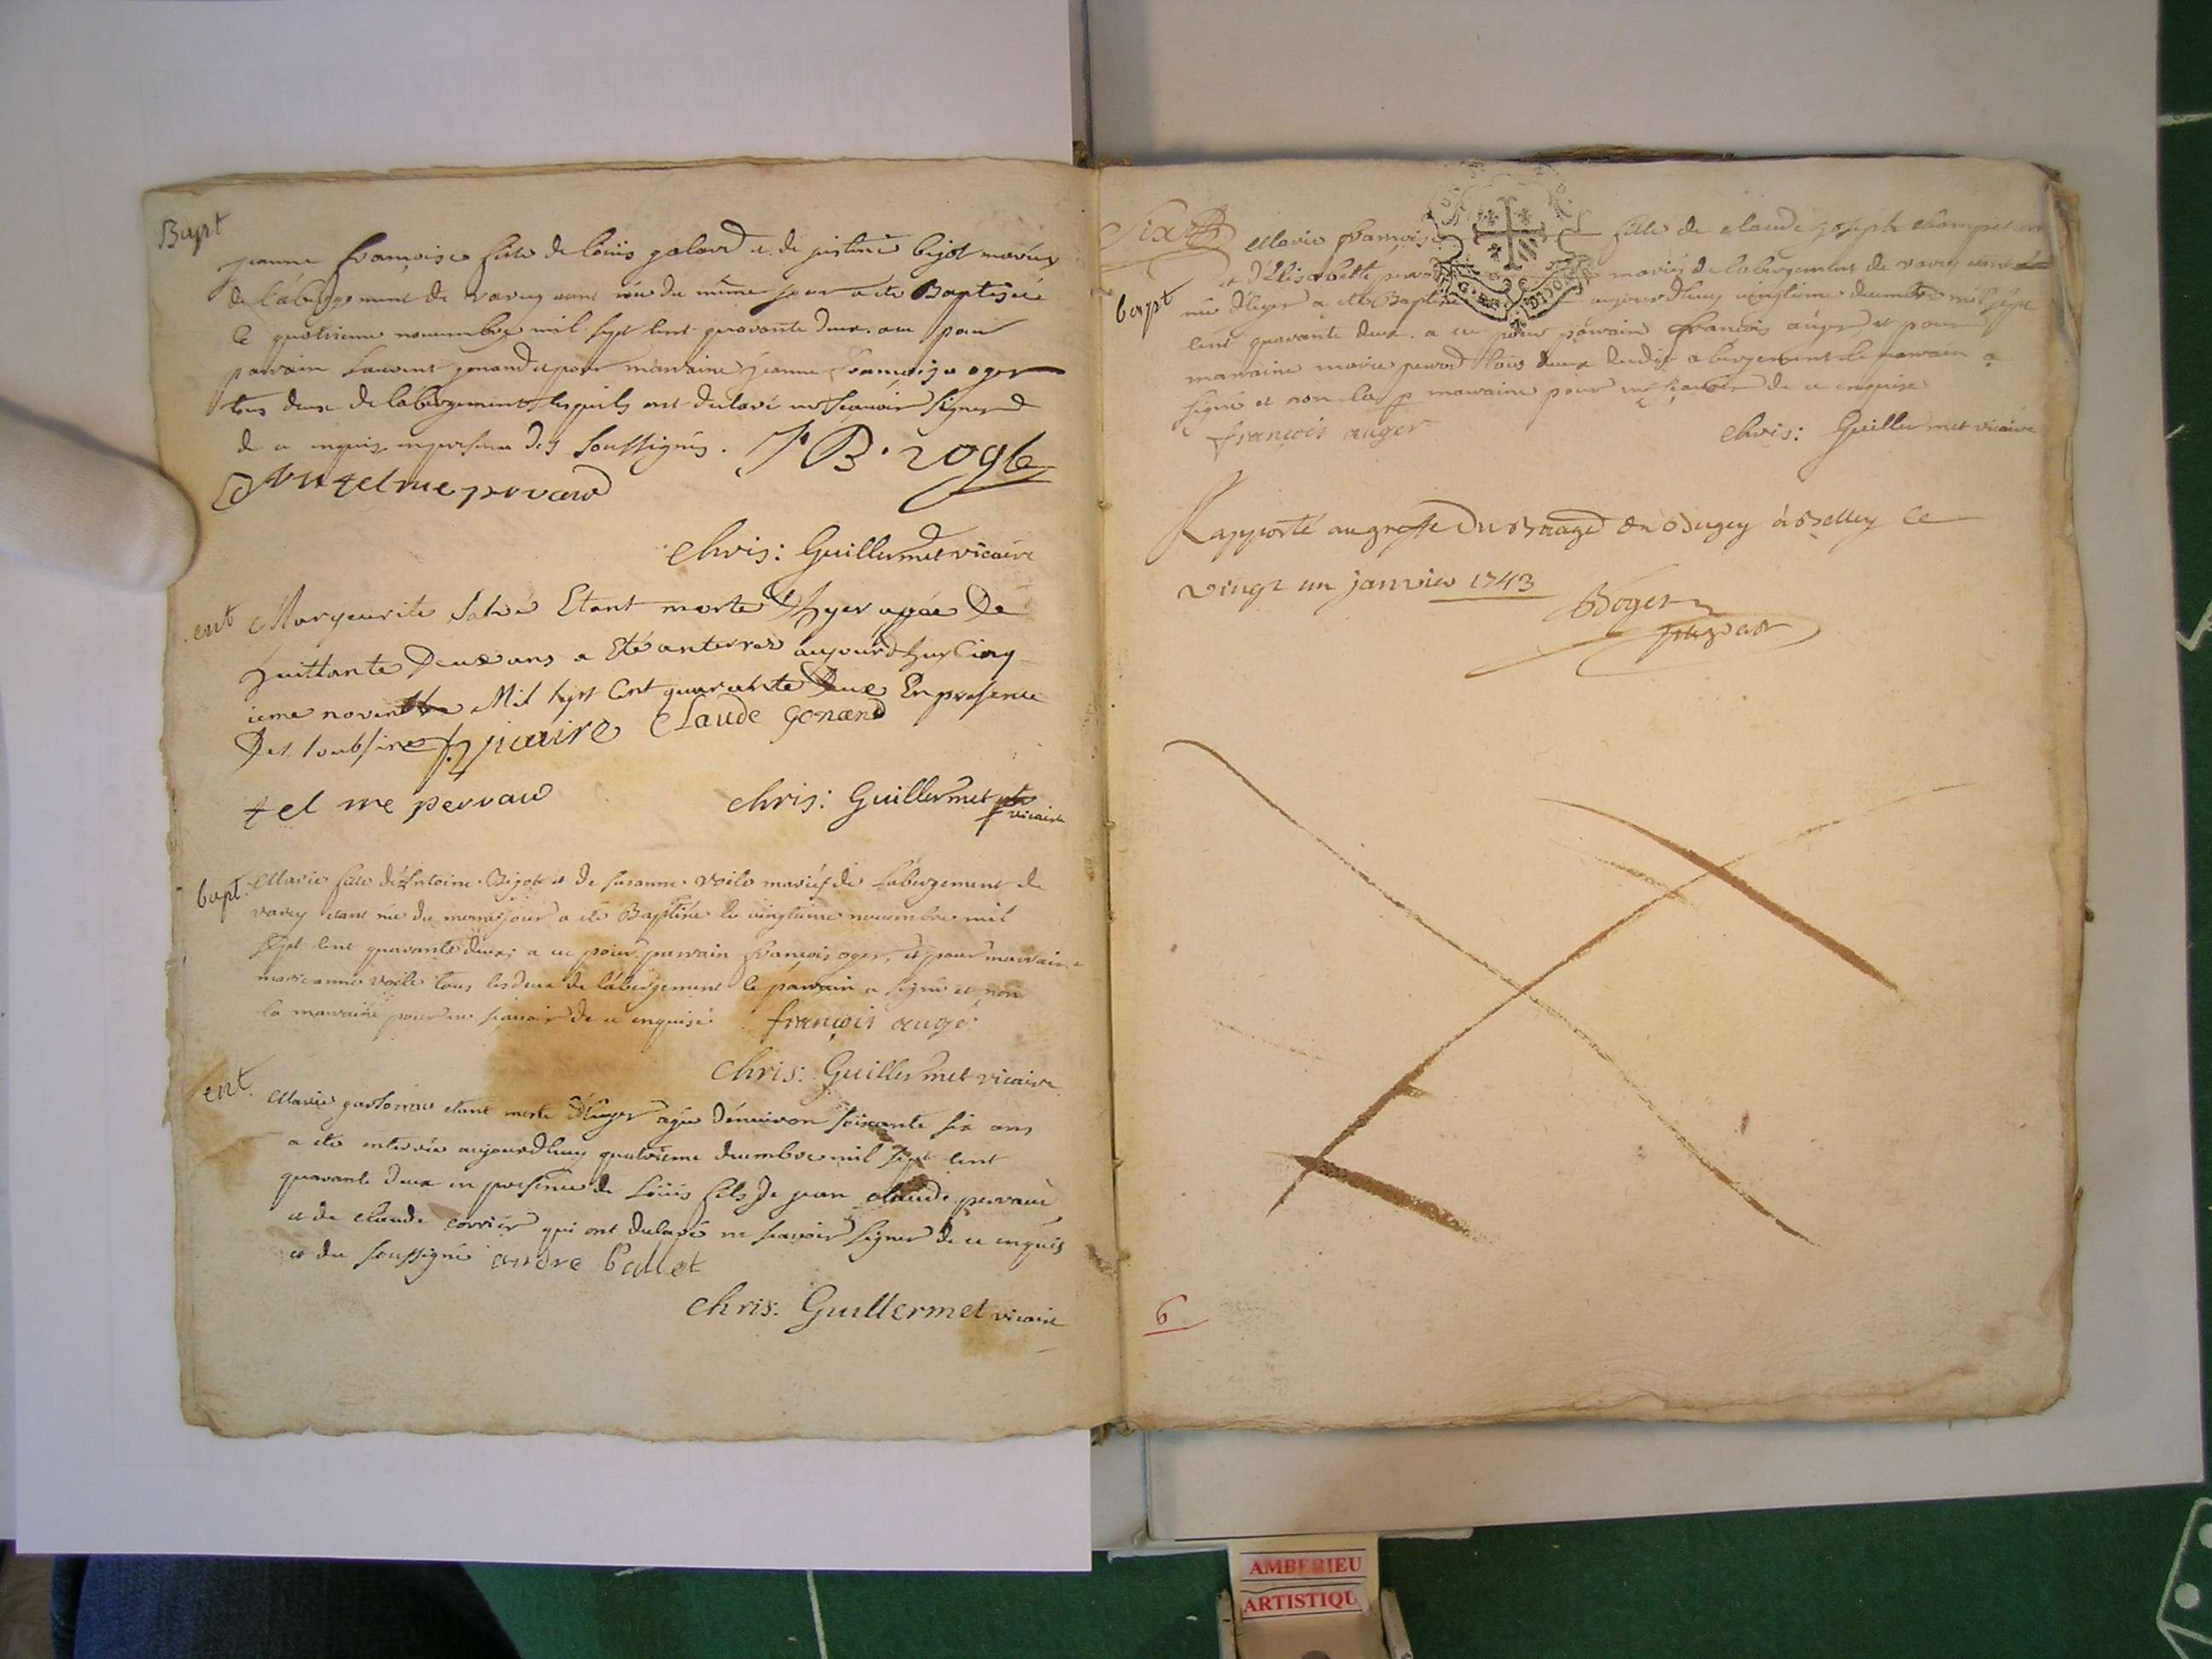 Bapt
jeanne françoise fille de loüis galand et de justine bijot mariés
de l'abergement de varey etant née du même jour a été Baptisée
le quatrieme novembre mil sept cent quarante deux. a eu pour
parrain Laurent gonand et pour marraine jeanne françoise oger
tous deux de l'abergement lesquels ont declaré ne sçavoir signer
de ce enquis en presence des soussignés.
Antelme pervaud
chris: Guillermet vicaire
ent
Marguerite etant morte d'hyer agée de
huittante Deux ans a Eté anterrée aujourd'huy Cinq
ieme novembre Mil sept Cent quarante Deux En presence
Des soubsignes Claude gonand
telme pervau
chris: Guillermet ptr
vicaire
bapt.
Marie fille d'Antoine Bigot et de susanne voile mariés de l'abergement de
varey etant née du meme jour a été Baptisée le vingtieme novembre mil
sept cent quarante deux; a eu pour parrain françois oger, et pour marraine
marieanne voile tous les deux de l'abergement le parrain a signé et non
la marraine pour ne sçavoir de ce enquise. françois auge
chris: Guillermet vicaire
ent.
Marie etant morte d'hyer agée d'environ soixante six ans
a été enterrée aujourdhuy quatrieme decembre mil sept cent
quarante deux en presence de Loüis fils de jean claude pervaud
et de claude corrier qui ont declaré ne sçavoir signer de ce enquis
et du soussigné andre ballet
chris: Guillermet vicaire
Six
bapt
Marie françoise fille de claude joseph
et d'Elisabeth mariés de l'abergement de varey etant
née d'hyer a été Baptisée aujourdhuy vingtieme decembre mil sept
cent quarante deux. a eu pour parrain françois auger et pour
marraine marie tous deux dudit abergement le parrain a
signé et non la marraine pour ne sçavoir de ce enquise
françois auger chris: Guillermet vicaire
Rapporté au greffe du Bailliage de Bugey à Belley ce
vingt un janvier 1743
6
AMBERIEU
ARTISTIQU